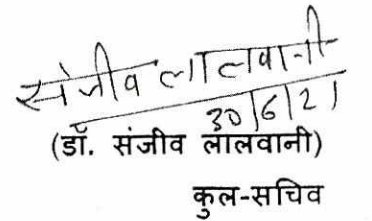 संजीव लालवानी
30/6/21
(डॉ. संजीव लालवानी)
कुल-सचिव